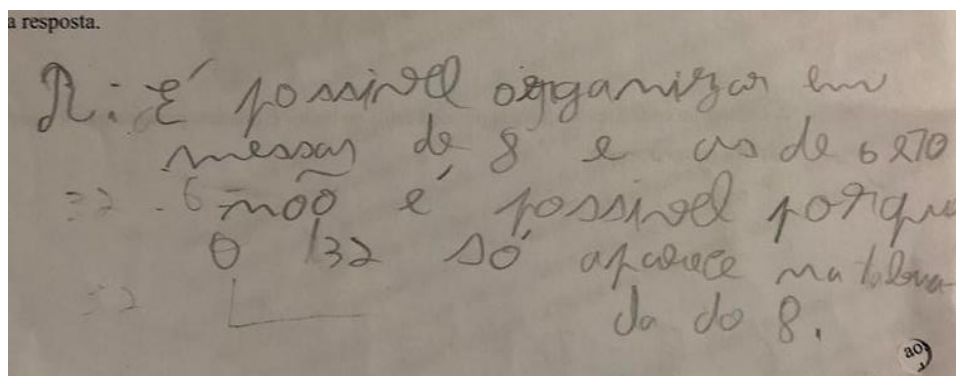 a resposta.
R: É possivel organizar em
messas de 8 e as de 6 e 10
não é possivel porque
0 132 só aparece na tabua-
da do 8.
ao